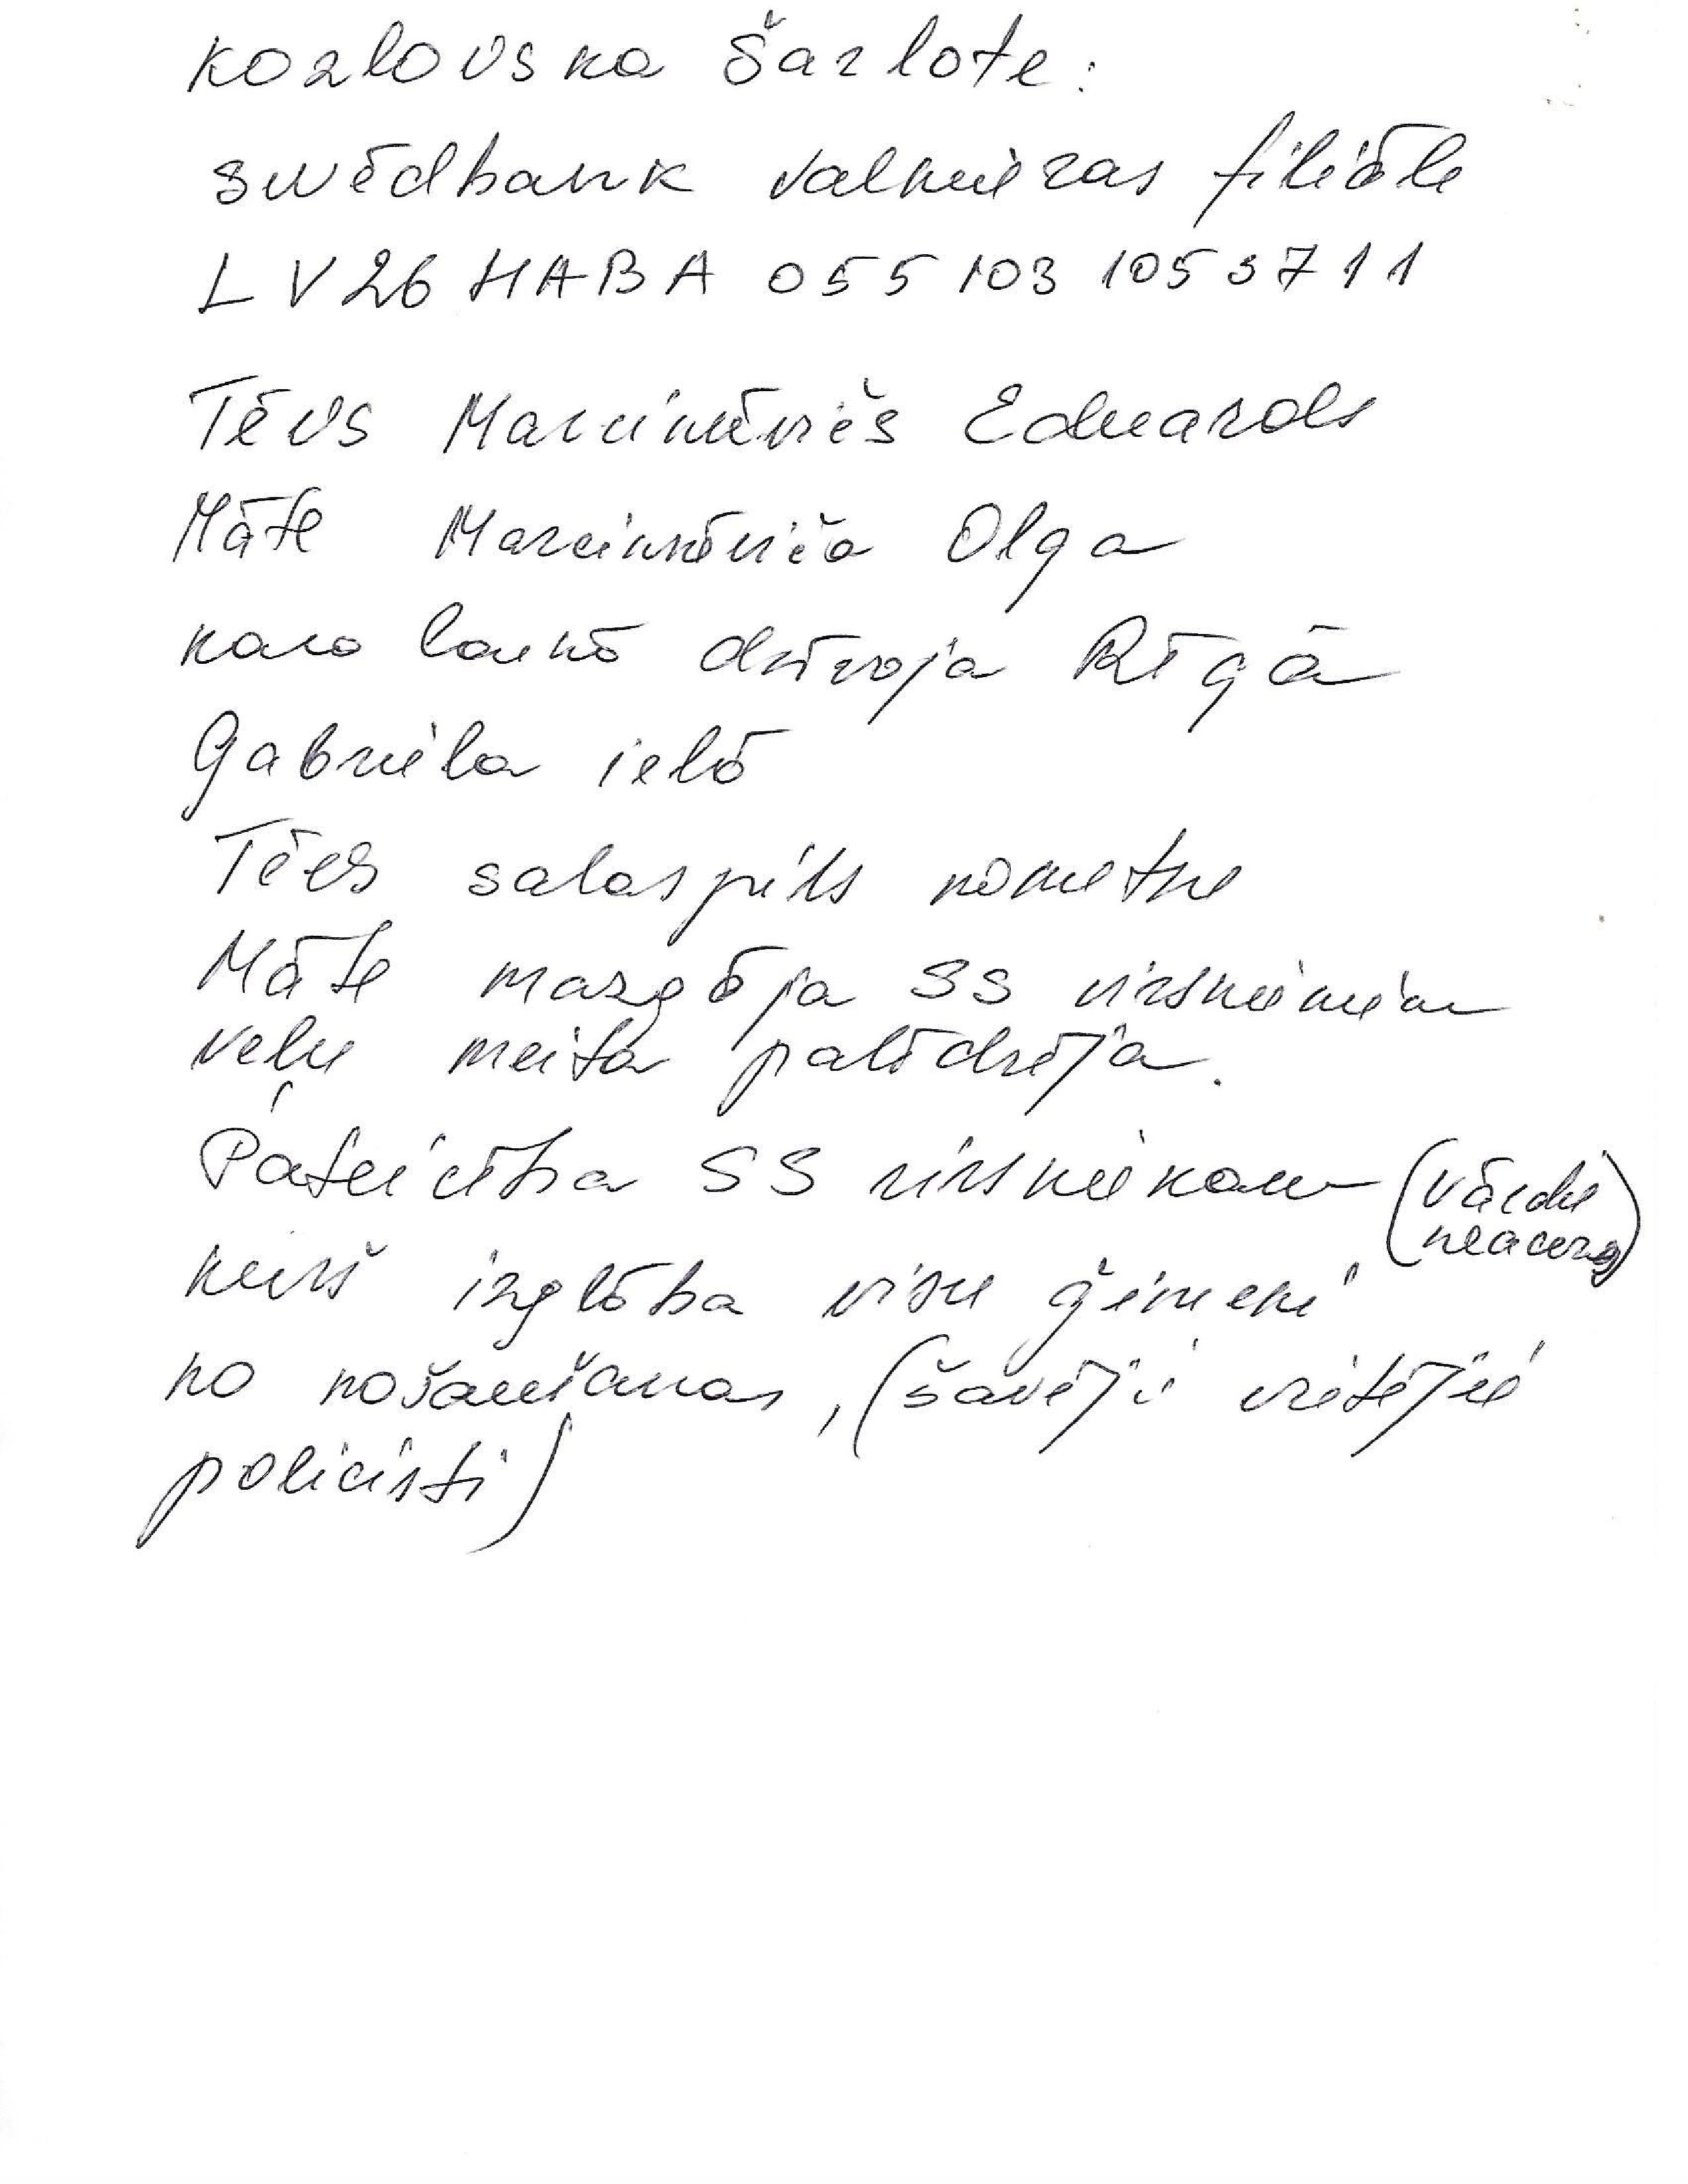 Kozlovska Šarlote:
Swēdbank Valmieras filiāle
LV26 HABA 055 103 1053711
Tēvs Marcinkēvičs Eduards
Māte Marcinkēviča Olga
kara laikā dzīvoja Rīgā
Gabriēla ielā
Tēvs salaspils nometne
Māte mazgāja SS virsniekiem
veļu meita palīdzēja.
Pateicība SS virsniekam (vārdu
neatceros)
kurš izglāba visu ģimeni
no nošaušanas, (šāvēji vietējie
policisti)